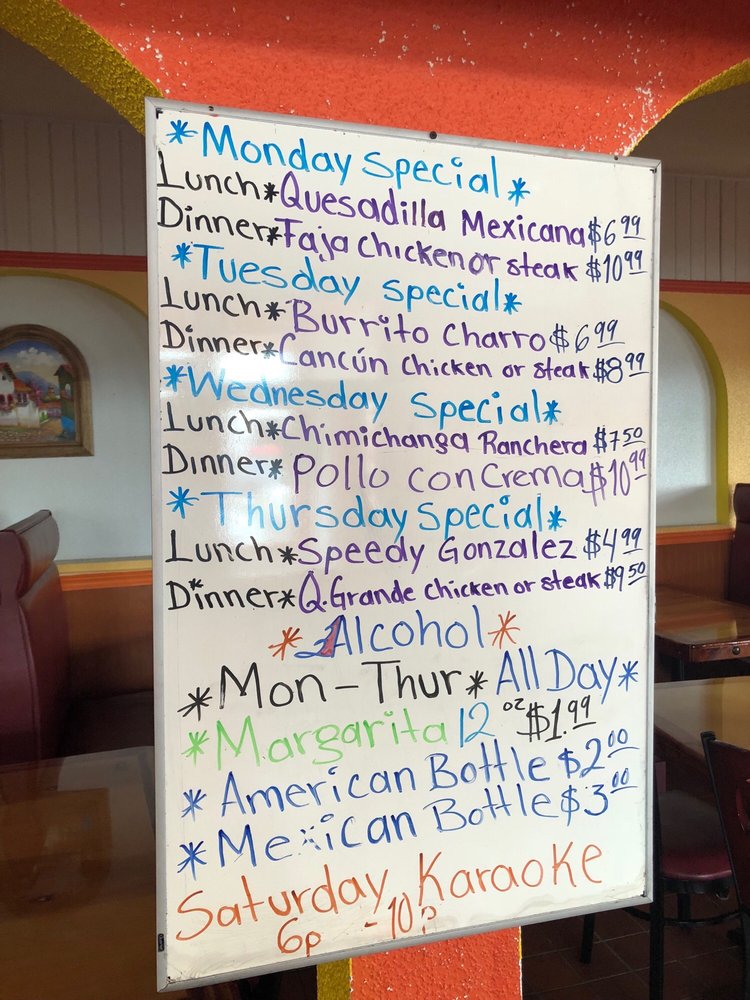 *Monday Special*
Lunch*Quesadilla Mexicana $6.99
Dinner*Faja chicken or steak $10.99
*Tuesday Special*
Lunch*Burrito Charro $6.99
Dinner*Cancún Chicken or steak $8.99
*Wednesday Special*
Lunch*Chimichanga Ranchera $7.50
Dinner* Pollo con Crema $10.99
*Thursday Special*
Lunch*Speedy Gonzalez $4.99
Dinner*Q.Grande chicken or steak $9.50
*Alcohol*
*Mon-Thur* All Day*
*Margarita 12 oz $1.99
*American Bottle $2.00
*Mexican Bottle $3.00
Saturday Karaoke
6p -10p